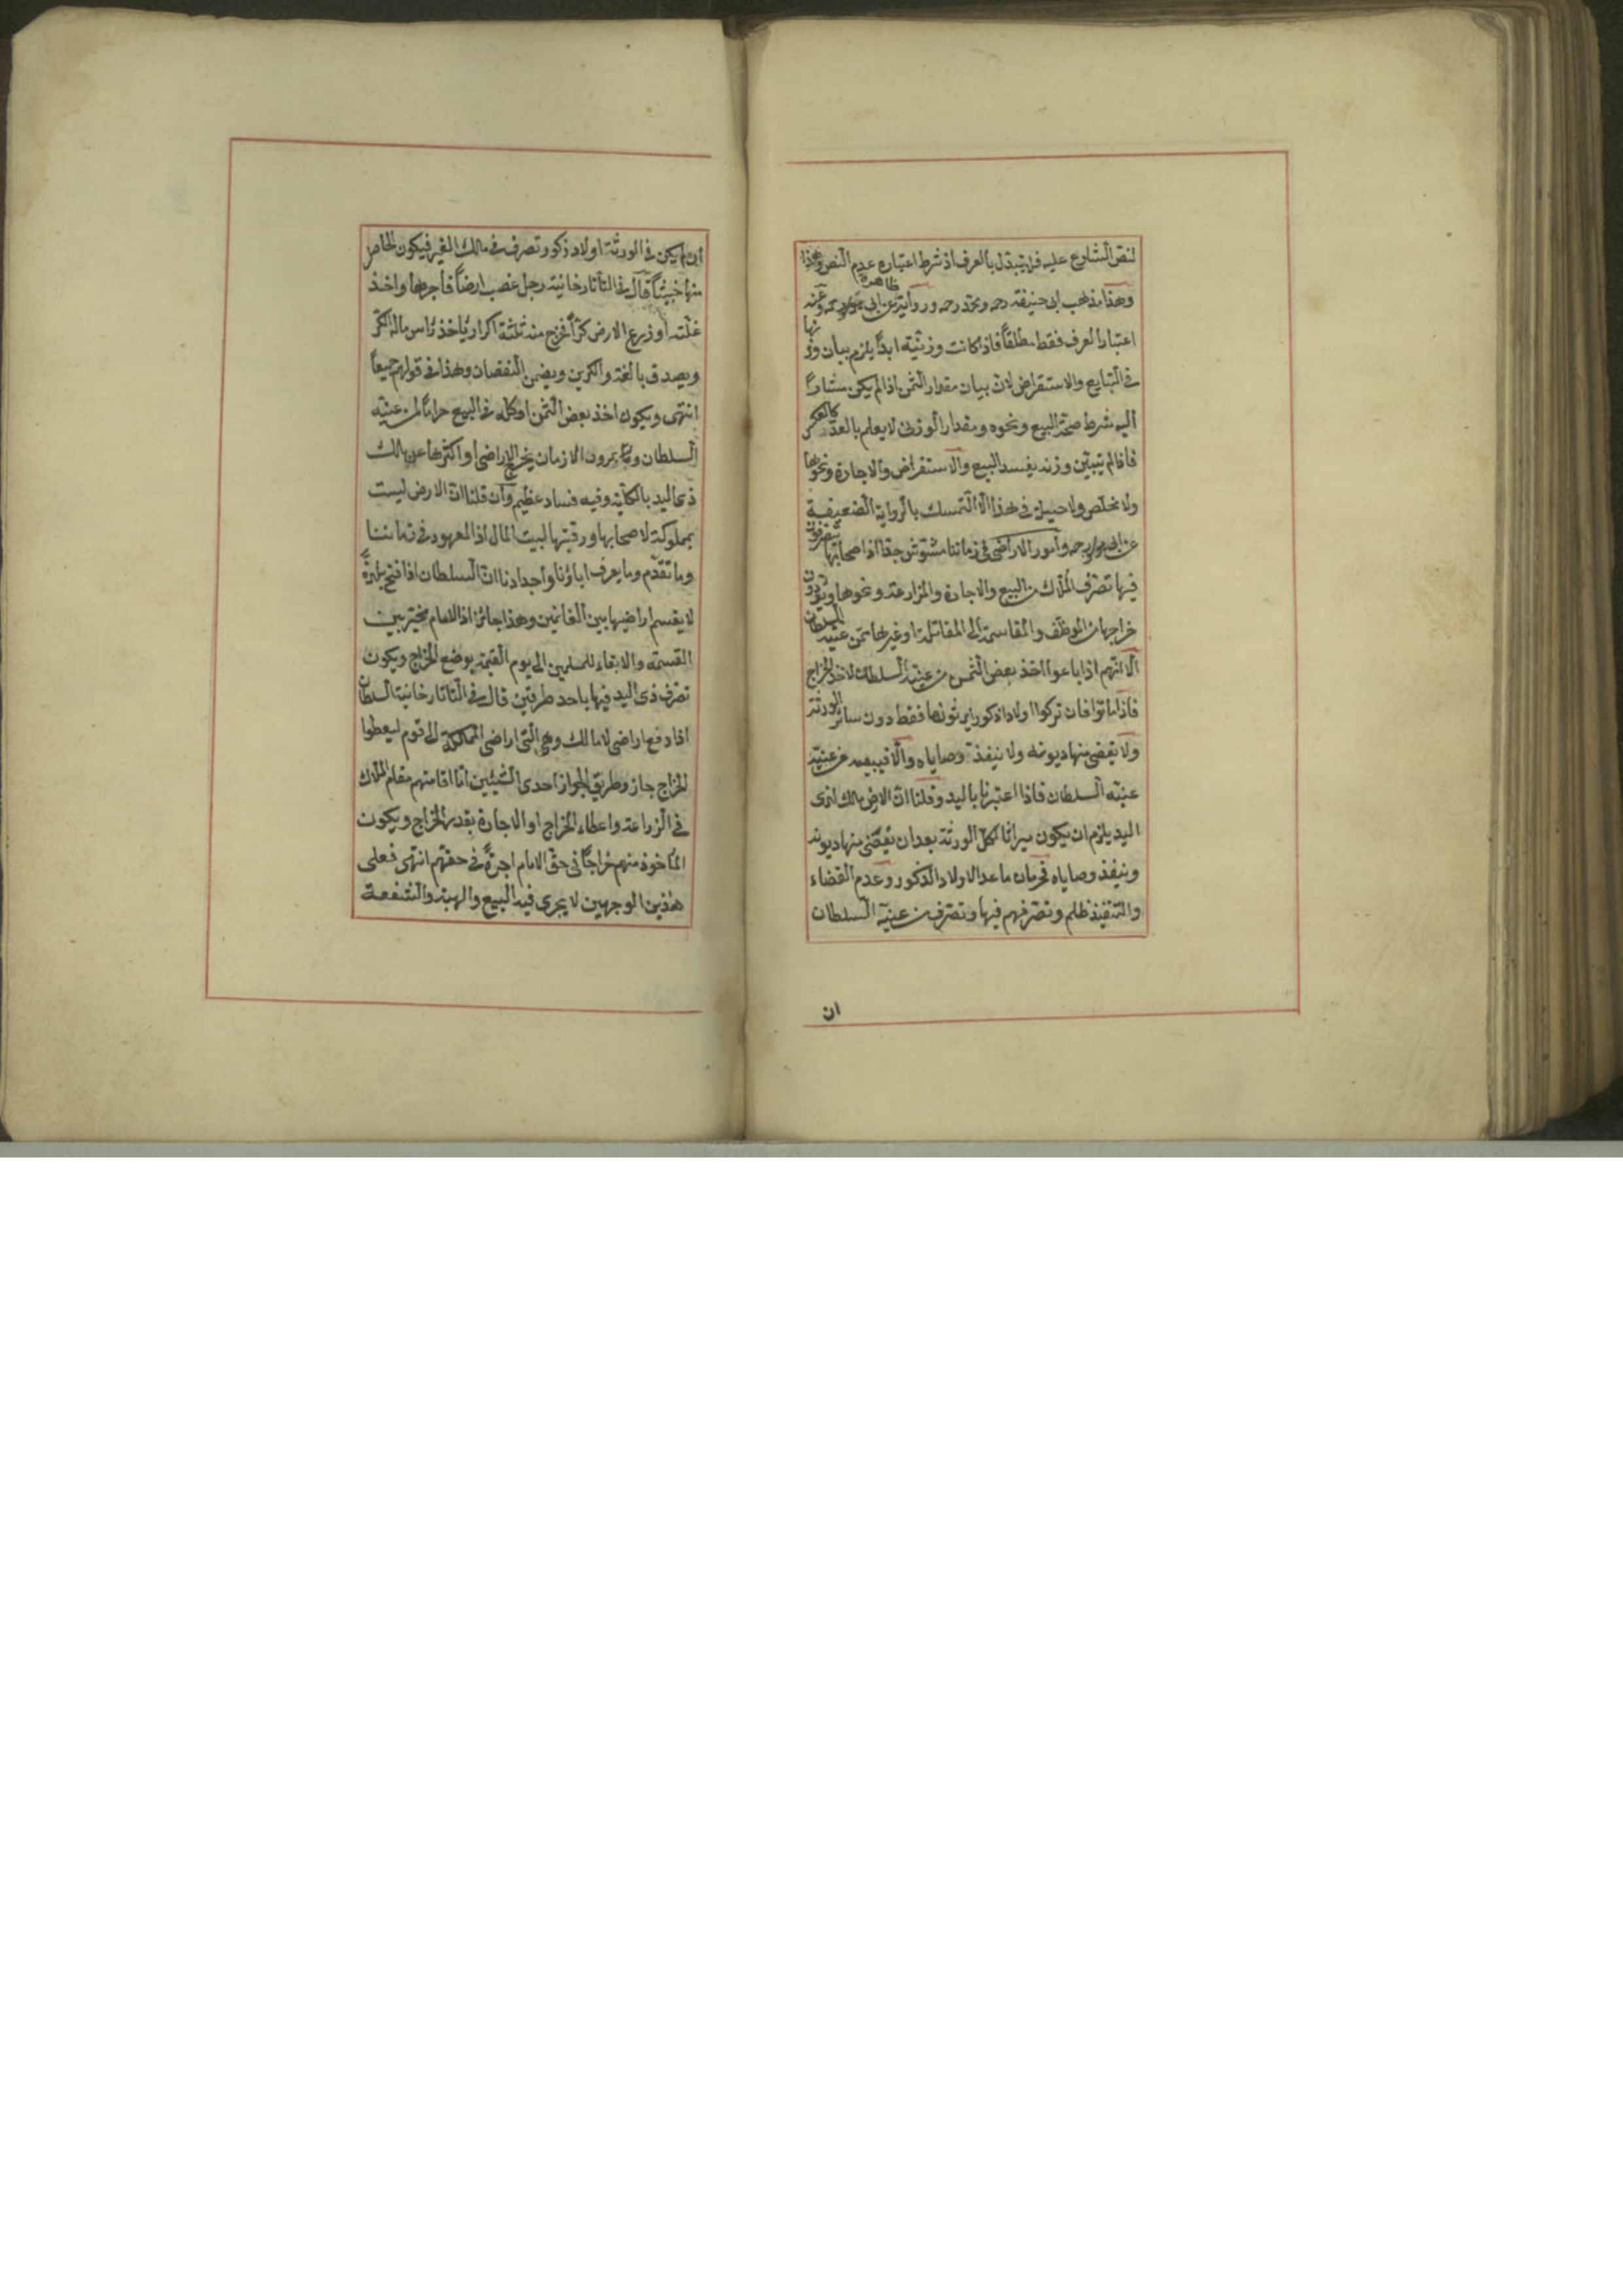 لنص الشارع عليه فلا يتبدل بالعرف اذ شرط اعتباره عدم النص وهذا
وهذا مذهب ابى حنيفة رحمه ومحمد رحمه ورواية ظاهرة عن ابى يوسف رحمه وعنه
اعتبار العرف فقط مطلقاً فاذا كانت وزنية ابداً يلزم بيان وزنها
فى التبايع والاستقراض لان بيان مقدار الثمن اذا لم يكن مشاراً
اليه شرط صحة البيع ونحوه ومقدار الوزنى لا يعلم بالعد كالعكس
فاذا لم يتبين وزنه يفسد البيع والاستقراض والاجارة ونحوها
ولا مخلص ولا حيلة فى هذا الا التمسك بالرواية الضعيفة
عن ابى يوسف رحمه وامور الاراضى فى زماننا مشوش جدا اذ اصحابها يتصرفون
فيها تصرف الملاك من البيع والاجارة والمزارعة ونحوها ويؤدون
خراجها من الموظف والمقاسمة الى المقاتلة او غيرها ممن عينه السلطان
الا انهم اذا باعوا اخذ بعض الثمن من عينه السلطان لاخذ الخراج
فاذا ماتوا فان تركوا اولادا ذكورا يرثونها فقط دون سائر الورثة
ولا يقضى منها ديونه ولا ينفذ وصاياه والا فيبيعه من عينه
عينه السلطان فاذا اعتبرنا باليد وقلنا ان الارض ملك لذى
اليد يلزم ان يكون ميراثا لكل الورثة بعد ان يقضى منها ديونه
وينفذ وصاياه فحرمان ما عدا الاولاد الذكور وعدم القضاء
والتنفيذ ظلم وتصرفهم فيها وتصرف من عينه السلطان
ان
ان لم يكن فى الورثة اولاد ذكور تصرف فى ملك الغير فيكون الحاصل
منها خبيثاً قال فى التاتارخانية رجل غصب ارضاً فاجرها واخذ
غلته او زرع الارض كراً فخرج منه ثلثة اكرار ياخذ راس ماله الكر
ويصدق بالغلة والكرين ويضمن النقصان وهذا فى قولهم جميعاً
انتهى ويكون اخذ بعض الثمن او كله فى البيع حراماً لمن عينه
السلطان وبمرور الازمان يخرج الاراضى او اكثرها عن ملك
ذى اليد بالكلية وفيه فساد عظيم وان قلنا ان الارض ليست
بمملوكة لاصحابها ورقبتها لبيت المال اذ المعهود فى زماننا
وما تقدم وما يعرف اباؤنا واجدادنا ان السلطان اذا فتح بلدةً
لا يقسم اراضيها بين الغانمين وهذا جائز اذ الامام مخير بين
القسمة والابقاء للمسلمين الى يوم القيمة بوضع الخراج ويكون
تصرف ذى اليد فيها باحد طريقين قال فى التاتارخانية السلطان
اذا دفع اراضى لا مالك وهى التى اراضى المملكة الى قوم ليعطوا
الخراج جاز وطريق الجواز احدى الشيئين اما اقامتهم مقام الملاك
فى الزراعة واعطاء الخراج او الاجارة بقدر الخراج ويكون
المأخوذ منهم خراجاً فى حق الامام اجرةً فى حقهم انتهى فعلى
هذين الوجهين لا يجرى فيه البيع والهبة والشفعة